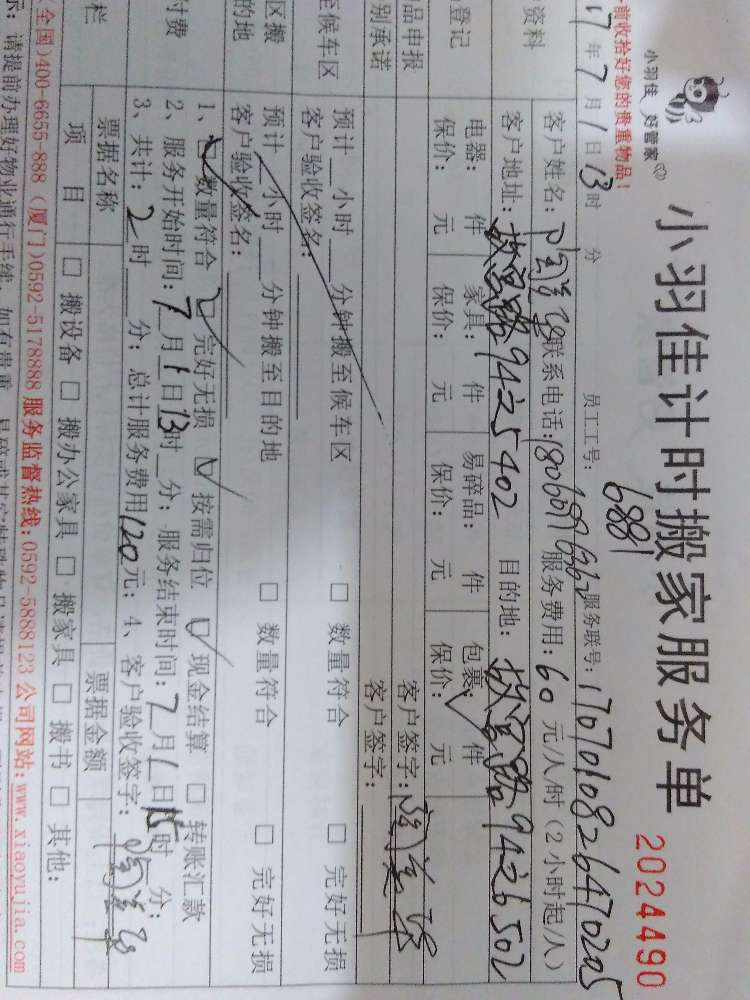 小羽佳
好管家
小羽佳计时搬家服务单
2024490
前收拾好您的贵重物品!
17年7月1日13时 分 员工工号: 6881 服务联号: 1707010826470205
资料
客户姓名: 联系电话: 18060976362 服务费用: 60元/人/时(2小时起/人)
客户地址: 9425402 目的地: 9426502
登记
电器: 件 家具: 件 易碎品: 件 包裹: 件
保价: 元 保价: 元 保价: 元 保价: 元
品申报 客户签字:
别承诺 客户签字:
至候车区
预计__小时__分钟搬至候车区 □ 数量符合 □ 完好无损
客户验收签名:
区搬
的地
预计__小时__分钟搬至目的地 □ 数量符合 □ 完好无损
客户验收签名:
付费
1、□数量符合 □完好无损 □按需归位 □现金结算 □转账汇款
2、服务开始时间: 7月1日13时__分; 服务结束时间: 7月1日15时 分;
3、共计: 2时__分; 总计服务费用120元; 4、客户验收签字:
栏
票据名称 票据金额
项 目 □ 搬设备 □ 搬办公家具 □ 搬家具 □ 搬书 □ 其他:
全国)400-6655-888 (厦门)0592-5178888 服务监督热线:0592-5888123 公司网站:www.xiaoyujia.com
示: 请提前办理好物业通行手续,如有贵重、易碎或其它特殊物品请提前